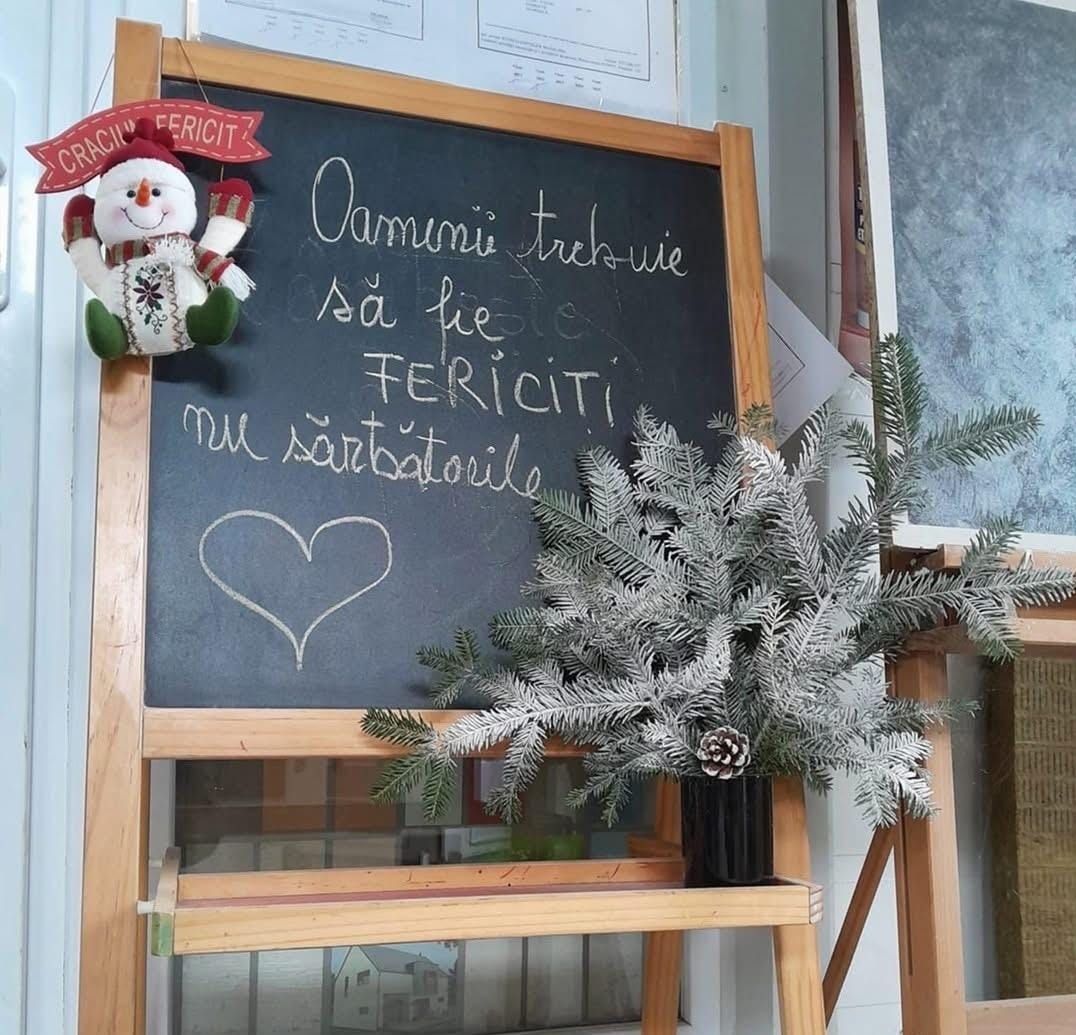 CRACIUN FERICIT
Oamenii trebuie
să fie
FERICIȚI
nu sărbătorile